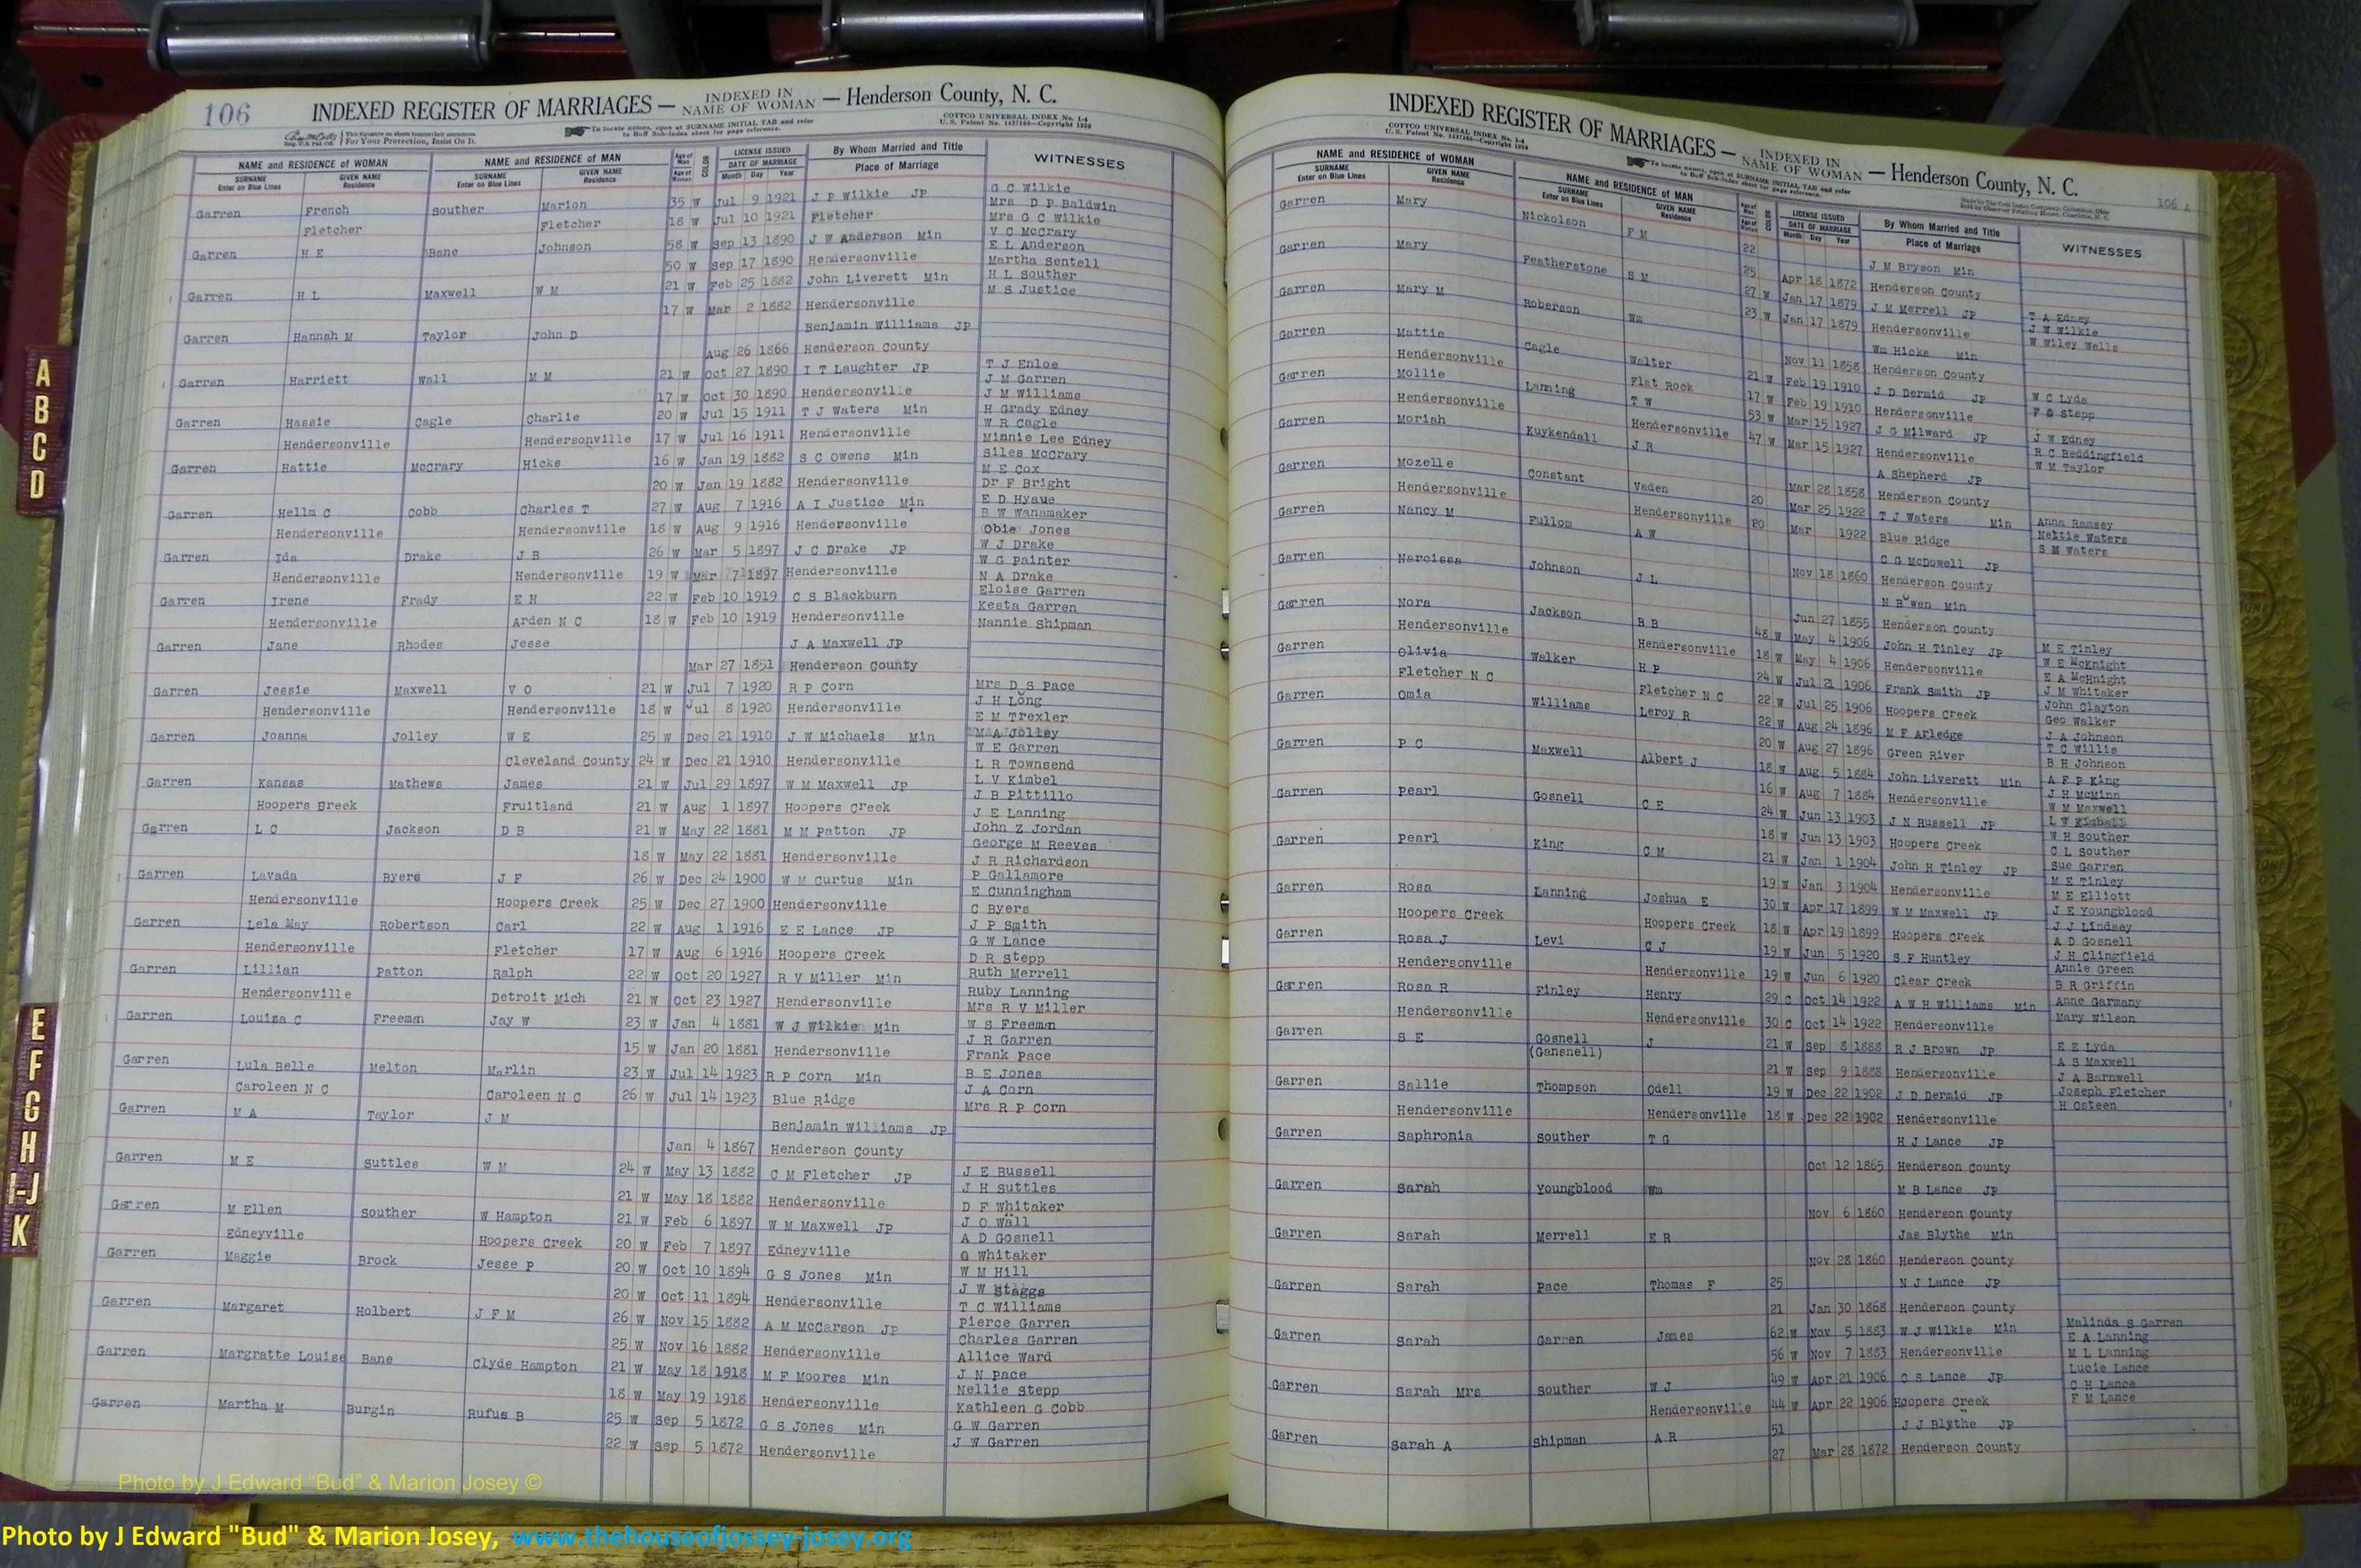 106
INDEXED REGISTER OF MARRIAGES — INDEXED IN NAME OF WOMAN — Henderson County, N. C.
This Signature on sheets insures their correctness. For Your Protection, Insist On It.
To locate names, open at SURNAME INITIAL TAB and refer to Buff Sub-Index sheet for page reference.
COTTCO UNIVERSAL INDEX No. 1-4
U. S. Patent No. 1437165—Copyright 1930
NAME and RESIDENCE OF WOMAN NAME and RESIDENCE OF MAN Age of Man COLOR LICENSE ISSUED By Whom Married and Title WITNESSES
SURNAME Enter on Blue Lines GIVEN NAME Residence SURNAME Enter on Blue Lines GIVEN NAME Residence Age of Woman DATE OF MARRIAGE Month Day Year Place of Marriage
Garren French Souther Marion 35 W Jul 9 1921 J P Wilkie JP G C Wilkie
Fletcher Fletcher 18 W Jul 10 1921 Fletcher Mrs D P Baldwin
Mrs G C Wilkie
Garren H E Bane Johnson 58 W Sep 13 1890 J W Anderson Min V C McCrary
50 W Sep 17 1890 Hendersonville E L Anderson
Martha Sentell
Garren H L Maxwell W M 21 W Feb 25 1882 John Liverett Min H L Souther
17 W Mar 2 1882 Hendersonville M S Justice
Garren Hannah M Taylor John D Benjamin Williams JP
Aug 26 1866 Henderson County
Garren Harriett Wall M M 21 W Oct 27 1890 I T Laughter JP T J Enloe
17 W Oct 30 1890 Hendersonville J M Garren
J M Williams
Garren Hassie Cagle Charlie 20 W Jul 15 1911 T J Waters Min H Grady Edney
Hendersonville Hendersonville 17 W Jul 16 1911 Hendersonville W R Cagle
Minnie Lee Edney
Garren Hattie McCrary Hicks 16 W Jan 19 1882 S C Owens Min Siles McCrary
20 W Jan 19 1882 Hendersonville M E Cox
Dr F Bright
Garren Hellm C Cobb Charles T 27 W Aug 7 1916 A I Justice Min E D Hyaue
Hendersonville Hendersonville 18 W Aug 9 1916 Hendersonville R W Wanamaker
Obie Jones
Garren Ida Drake J B 26 W Mar 5 1897 J C Drake JP W J Drake
Hendersonville Hendersonville 19 W Mar 7 1897 Hendersonville W G Painter
N A Drake
Garren Irene Frady E H 22 W Feb 10 1919 C S Blackburn Eloise Garren
Hendersonville Arden N C 18 W Feb 10 1919 Hendersonville Kesta Garren
Nannie Shipman
Garren Jane Rhodes Jesse J A Maxwell JP
Mar 27 1851 Henderson County
Garren Jessie Maxwell V O 21 W Jul 7 1920 R P Corn Mrs D S Pace
Hendersonville Hendersonville 18 W Jul 8 1920 Hendersonville J H Long
E M Trexler
Garren Joanna Jolley W E 25 W Dec 21 1910 J W Michaels Min M A Jolley
Cleveland County 24 W Dec 21 1910 Hendersonville W E Garren
L R Townsend
Garren Kansas Mathews James 21 W Jul 29 1897 W M Maxwell JP L V Kimbel
Hoopers Breek Fruitland 21 W Aug 1 1897 Hoopers Creek J B Pittillo
J E Lanning
Garren L C Jackson D B 21 W May 22 1881 M M Patton JP John Z Jordan
18 W May 22 1881 Hendersonville George M Reeves
J R Richardson
Garren Lavada Byers J F 26 W Dec 24 1900 W M Curtus Min P Gallamore
Hendersonville Hoopers Creek 25 W Dec 27 1900 Hendersonville E Cunningham
C Byers
Garren Lela May Robertson Carl 22 W Aug 1 1916 E E Lance JP J P Smith
Hendersonville Fletcher 17 W Aug 6 1916 Hoopers Creek G W Lance
D R Stepp
Garren Lillian Patton Ralph 22 W Oct 20 1927 R V Miller Min Ruth Merrell
Hendersonville Detroit Mich 21 W Oct 23 1927 Hendersonville Ruby Lanning
Mrs R V Miller
Garren Louiza C Freeman Jay W 23 W Jan 4 1881 W J Wilkie Min W S Freeman
15 W Jan 20 1881 Hendersonville J R Garren
Frank Pace
Garren Lula Belle Melton Marlin 23 W Jul 14 1923 R P Corn Min B E Jones
Caroleen N C Caroleen N C 26 W Jul 14 1923 Blue Ridge J A Corn
Mrs R P Corn
Garren M A Taylor J M Benjamin Williams JP
Jan 4 1867 Henderson County
Garren M E Suttles W M 24 W May 13 1882 C M Fletcher JP J E Bussell
21 W May 18 1882 Hendersonville J H Suttles
D F Whitaker
Garren M Ellen Souther W Hampton 21 W Feb 6 1897 W M Maxwell JP J O Wall
Edneyville Hoopers Creek 20 W Feb 7 1897 Edneyville A D Gosnell
G Whitaker
Garren Maggie Brock Jesse P 20 W Oct 10 1894 G S Jones Min W M Hill
20 W Oct 11 1894 Hendersonville J W Staggs
T C Williams
Garren Margaret Holbert J F M 26 W Nov 15 1882 A M McCarson JP Pierce Garren
25 W Nov 16 1882 Hendersonville Charles Garren
Allice Ward
Garren Margratte Louise Bane Clyde Hampton 21 W May 18 1918 M F Moores Min J N Pace
18 W May 19 1918 Hendersonville Nellie Stepp
Kathleen G Cobb
Garren Martha M Burgin Rufus B 25 W Sep 5 1872 G S Jones Min G W Garren
22 W Sep 5 1872 Hendersonville J W Garren
INDEXED REGISTER OF MARRIAGES — INDEXED IN NAME OF WOMAN — Henderson County, N. C.
COTTCO UNIVERSAL INDEX No. 1-4
U. S. Patent No. 1437165—Copyright 1930
To locate names, open at SURNAME INITIAL TAB and refer to Buff Sub-Index sheet for page reference.
106 A
NAME and RESIDENCE OF WOMAN NAME and RESIDENCE OF MAN Age of Man COLOR LICENSE ISSUED By Whom Married and Title WITNESSES
SURNAME Enter on Blue Lines GIVEN NAME Residence SURNAME Enter on Blue Lines GIVEN NAME Residence Age of Woman DATE OF MARRIAGE Month Day Year Place of Marriage
Garren Mary Nickolson F M 22 J M Bryson Min
25 Apr 18 1872 Henderson County
Garren Mary Featherstone S M 27 W Jan 17 1879 J M Merrell JP T A Edney
23 W Jan 17 1879 Hendersonville J W Wilkie
W Wiley Wells
Garren Mary M Roberson Wm Wm Hicks Min
Nov 11 1858 Henderson County
Garren Mattie Cagle Walter 21 W Feb 19 1910 J D Dermid JP W C Lyda
Hendersonville Flat Rock 17 W Feb 19 1910 Hendersonville F G Stepp
Garren Mollie Laming T W 53 W Mar 15 1927 J G Milward JP J W Edney
Hendersonville Hendersonville 47 W Mar 15 1927 Hendersonville R C Beddingfield
W M Taylor
Garren Moriah Kuykendall J R A Shepherd JP
Mar 28 1858 Henderson County
Garren Mozelle Constant Vaden 20 Mar 25 1922 T J Waters Min Anna Ramsey
Hendersonville Hendersonville 20 Mar 1922 Blue Ridge Nettie Waters
S M Waters
Garren Nancy M Fullom A W C G McDowell JP
Nov 18 1860 Henderson County
Garren Narcissa Johnson J L N Bowen Min
Jun 27 1855 Henderson County
Garren Nora Jackson B B 48 W May 4 1906 John H Tinley JP M E Tinley
Hendersonville Hendersonville 18 W May 4 1906 Hendersonville W E McKnight
E A McHnight
Garren Olivia Walker H P 24 W Jul 21 1906 Frank Smith JP J M Whitaker
Fletcher N C Fletcher N C 22 W Jul 25 1906 Hoopers Creek John Clayton
Geo Walker
Garren Omia Williams Leroy R 22 W Aug 24 1896 M F Arledge J A Johnson
20 W Aug 27 1896 Green River T C Willis
B H Johnson
Garren P C Maxwell Albert J 18 W Aug 5 1884 John Liverett Min A F P King
16 W Aug 7 1884 Hendersonville J H McMinn
W M Maxwell
Garren Pearl Gosnell C E 24 W Jun 13 1903 J N Russell JP L W Kimball
18 W Jun 13 1903 Hoopers Creek W H Souther
C L Souther
Garren Pearl King C M 21 W Jan 1 1904 John H Tinley JP Sue Garren
19 W Jan 3 1904 Hendersonville M E Tinley
M E Elliott
Garren Rosa Lanning Joshua E 30 W Apr 17 1899 W M Maxwell JP J E Youngblood
Hoopers Creek Hoopers Creek 18 W Apr 19 1899 Hoopers Creek J J Lindsey
A D Gosnell
Garren Rosa J Levi C J 19 W Jun 5 1920 S F Huntley J H Clingfield
Hendersonville Hendersonville 19 W Jun 6 1920 Clear Creek Annie Green
B R Griffin
Garren Rosa R Finley Henry 29 C Oct 14 1922 A W H Williams Min Anne Garmany
Hendersonville Hendersonville 30 C Oct 14 1922 Hendersonville Mary Wilson
Garren S E Gosnell J 21 W Sep 8 1888 R J Brown JP E E Lyda
(Gansnell) 21 W Sep 9 1888 Hendersonville A S Maxwell
J A Barnwell
Garren Sallie Thompson Odell 19 W Dec 22 1902 J D Dermid JP Joseph Fletcher
Hendersonville Hendersonville 18 W Dec 22 1902 Hendersonville H Osteen
Garren Saphronia Souther T G H J Lance JP
Oct 12 1865 Henderson County
Garren Sarah Youngblood Wm M B Lance JP
Nov 6 1860 Henderson County
Garren Sarah Merrell E R Jas Blythe Min
Nov 28 1860 Henderson County
Garren Sarah Pace Thomas F 25 N J Lance JP
21 Jan 30 1868 Henderson County
Garren Sarah Garren James 62 W Nov 5 1883 W J Wilkie Min Malinda S Garren
56 W Nov 7 1883 Hendersonville E A Lanning
M L Lanning
Garren Sarah Mrs Souther W J 49 W Apr 21 1906 C S Lance JP Lucie Lance
Hendersonville 44 W Apr 22 1906 Hoopers Creek C H Lance
F M Lance
Garren Sarah A Shipman A R 51 J J Blythe JP
27 Mar 28 1872 Henderson County
A
B
C
D
E
F
G
H
I-J
K
Photo by J Edward "Bud" & Marion Josey ©
Photo by J Edward "Bud" & Marion Josey, www.thehouseofjossey-josey.org